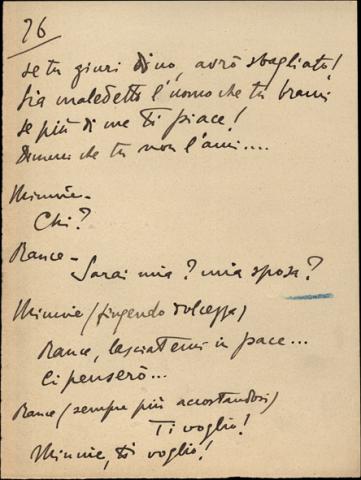 76
se tu giuri di no, avrò sbagliato!
Sia maledetto l'uomo che tu brami
se più di me ti piace!
Dimmi che tu non l'ami....
Minnie -
Chi?
Rance -
Sarai mia? mia sposa?
Minnie (fingendo dolcezza)
Rance, lasciatemi in pace...
Ci penserò...
Rance (sempre più accostandosi)
Ti voglio!
Minnie, ti voglio!